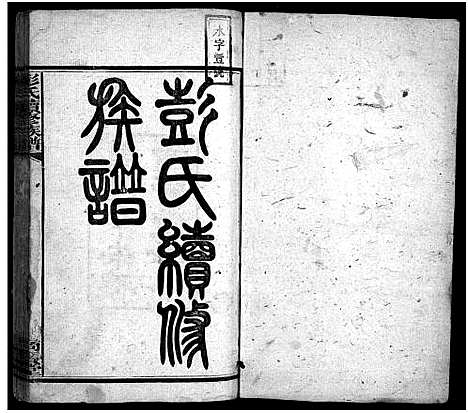 水字號
彭氏續修
族譜
彭氏續修族譜